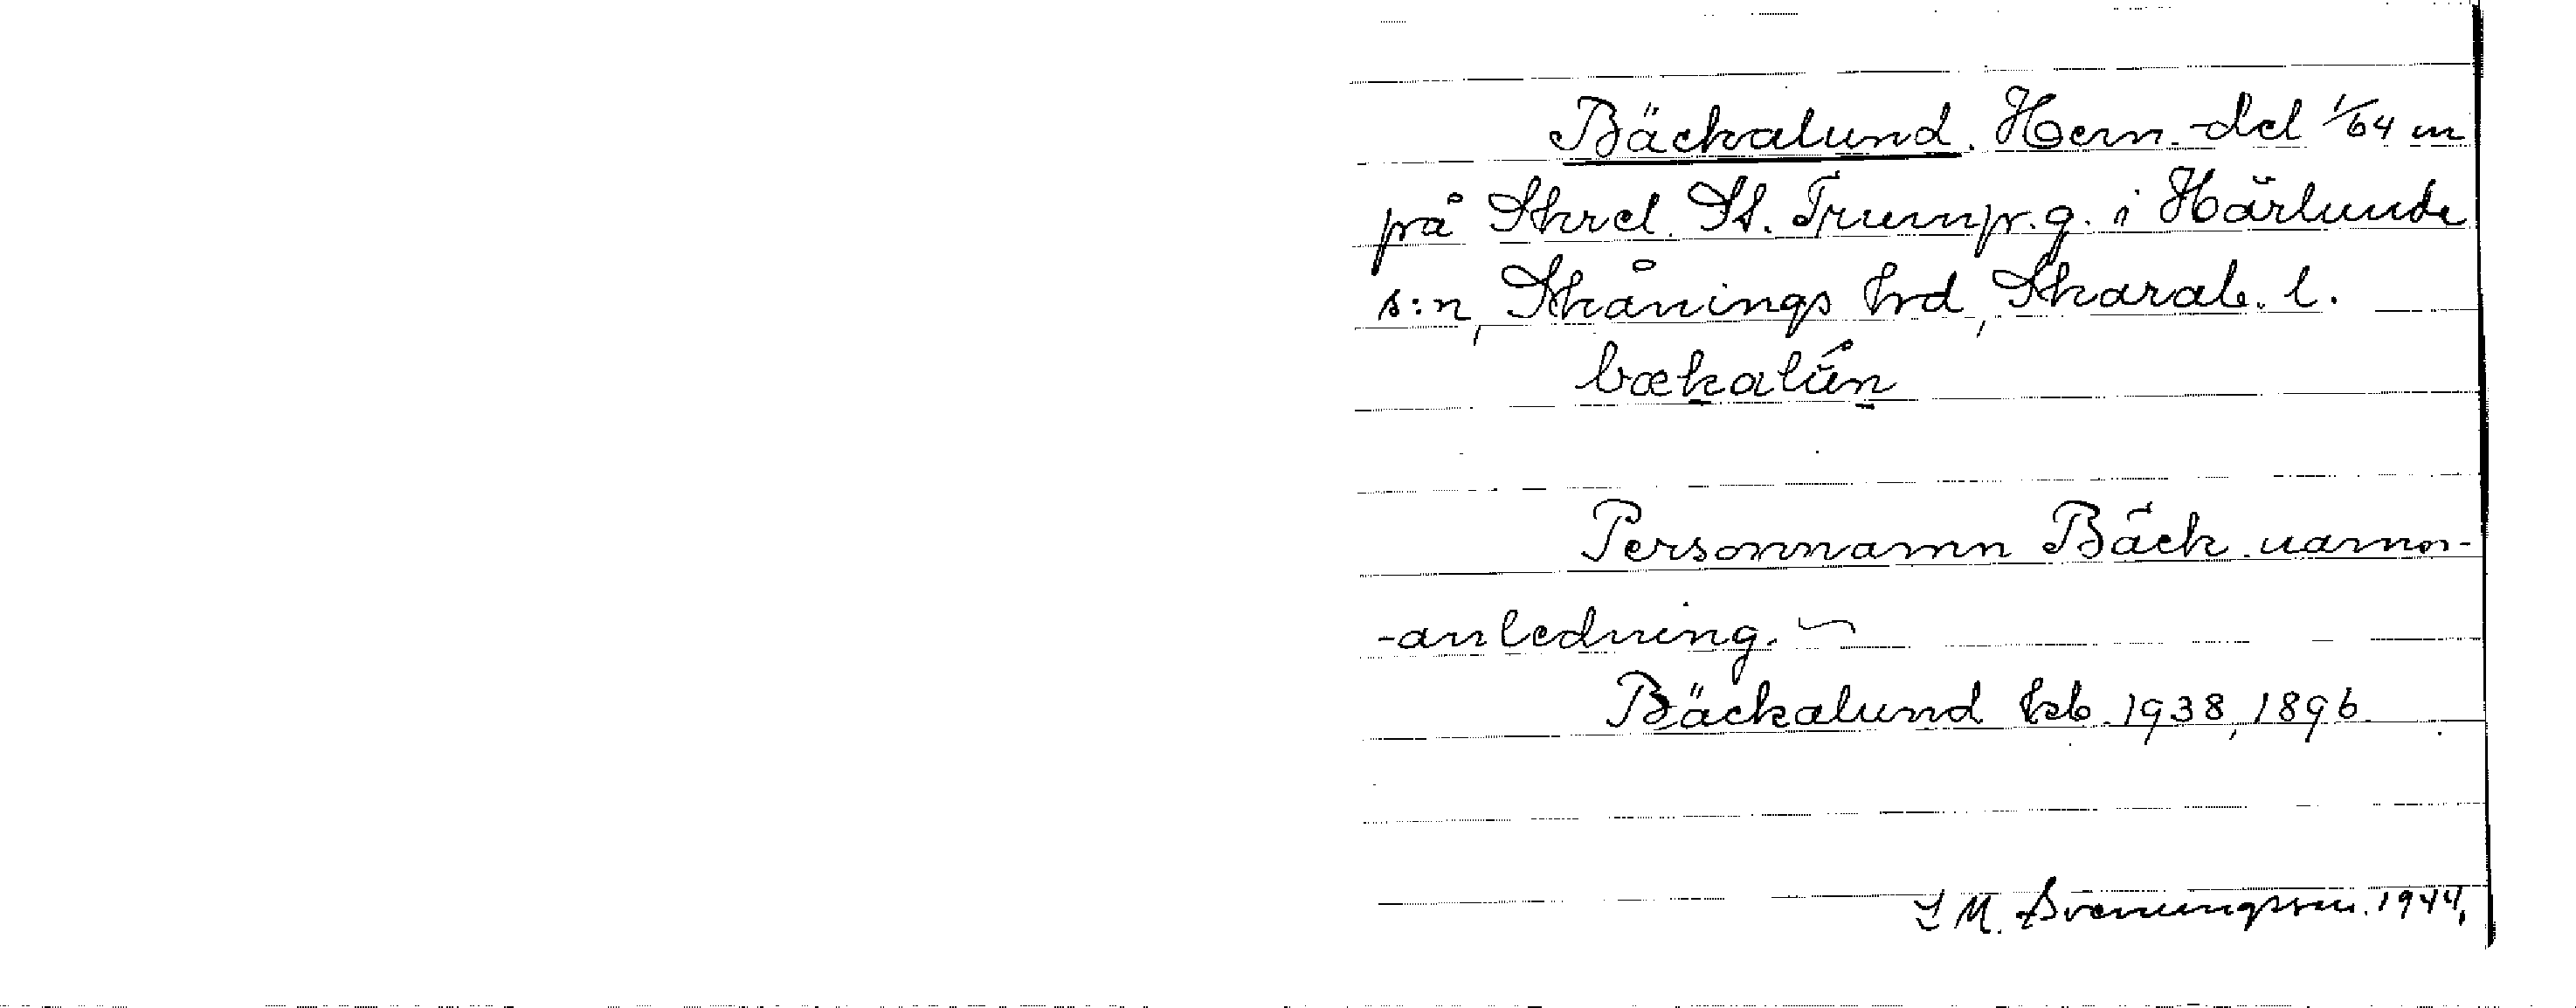 Bäckalund. Hem.-del 1/64 m
på Skrel. St. Trump.g. i Härlunda
s:n, Skånings hrd, Skarab. l.
bækalún
Personnamn Bäck namn-
-anledning.
Bäckalund kb. 1938, 1896.
S M. Svenungsson. 1944.